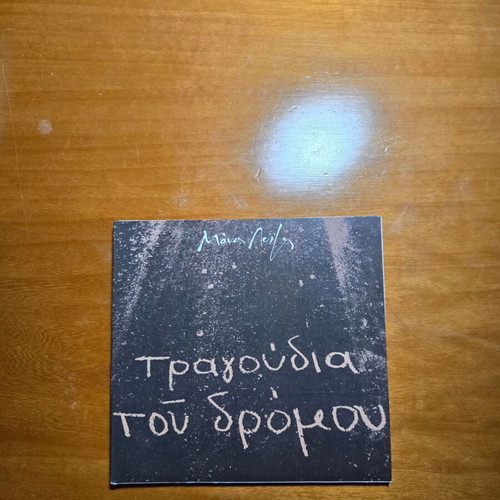 Μάνος Λοΐζος
τραγούδια
τοῦ δρόμου